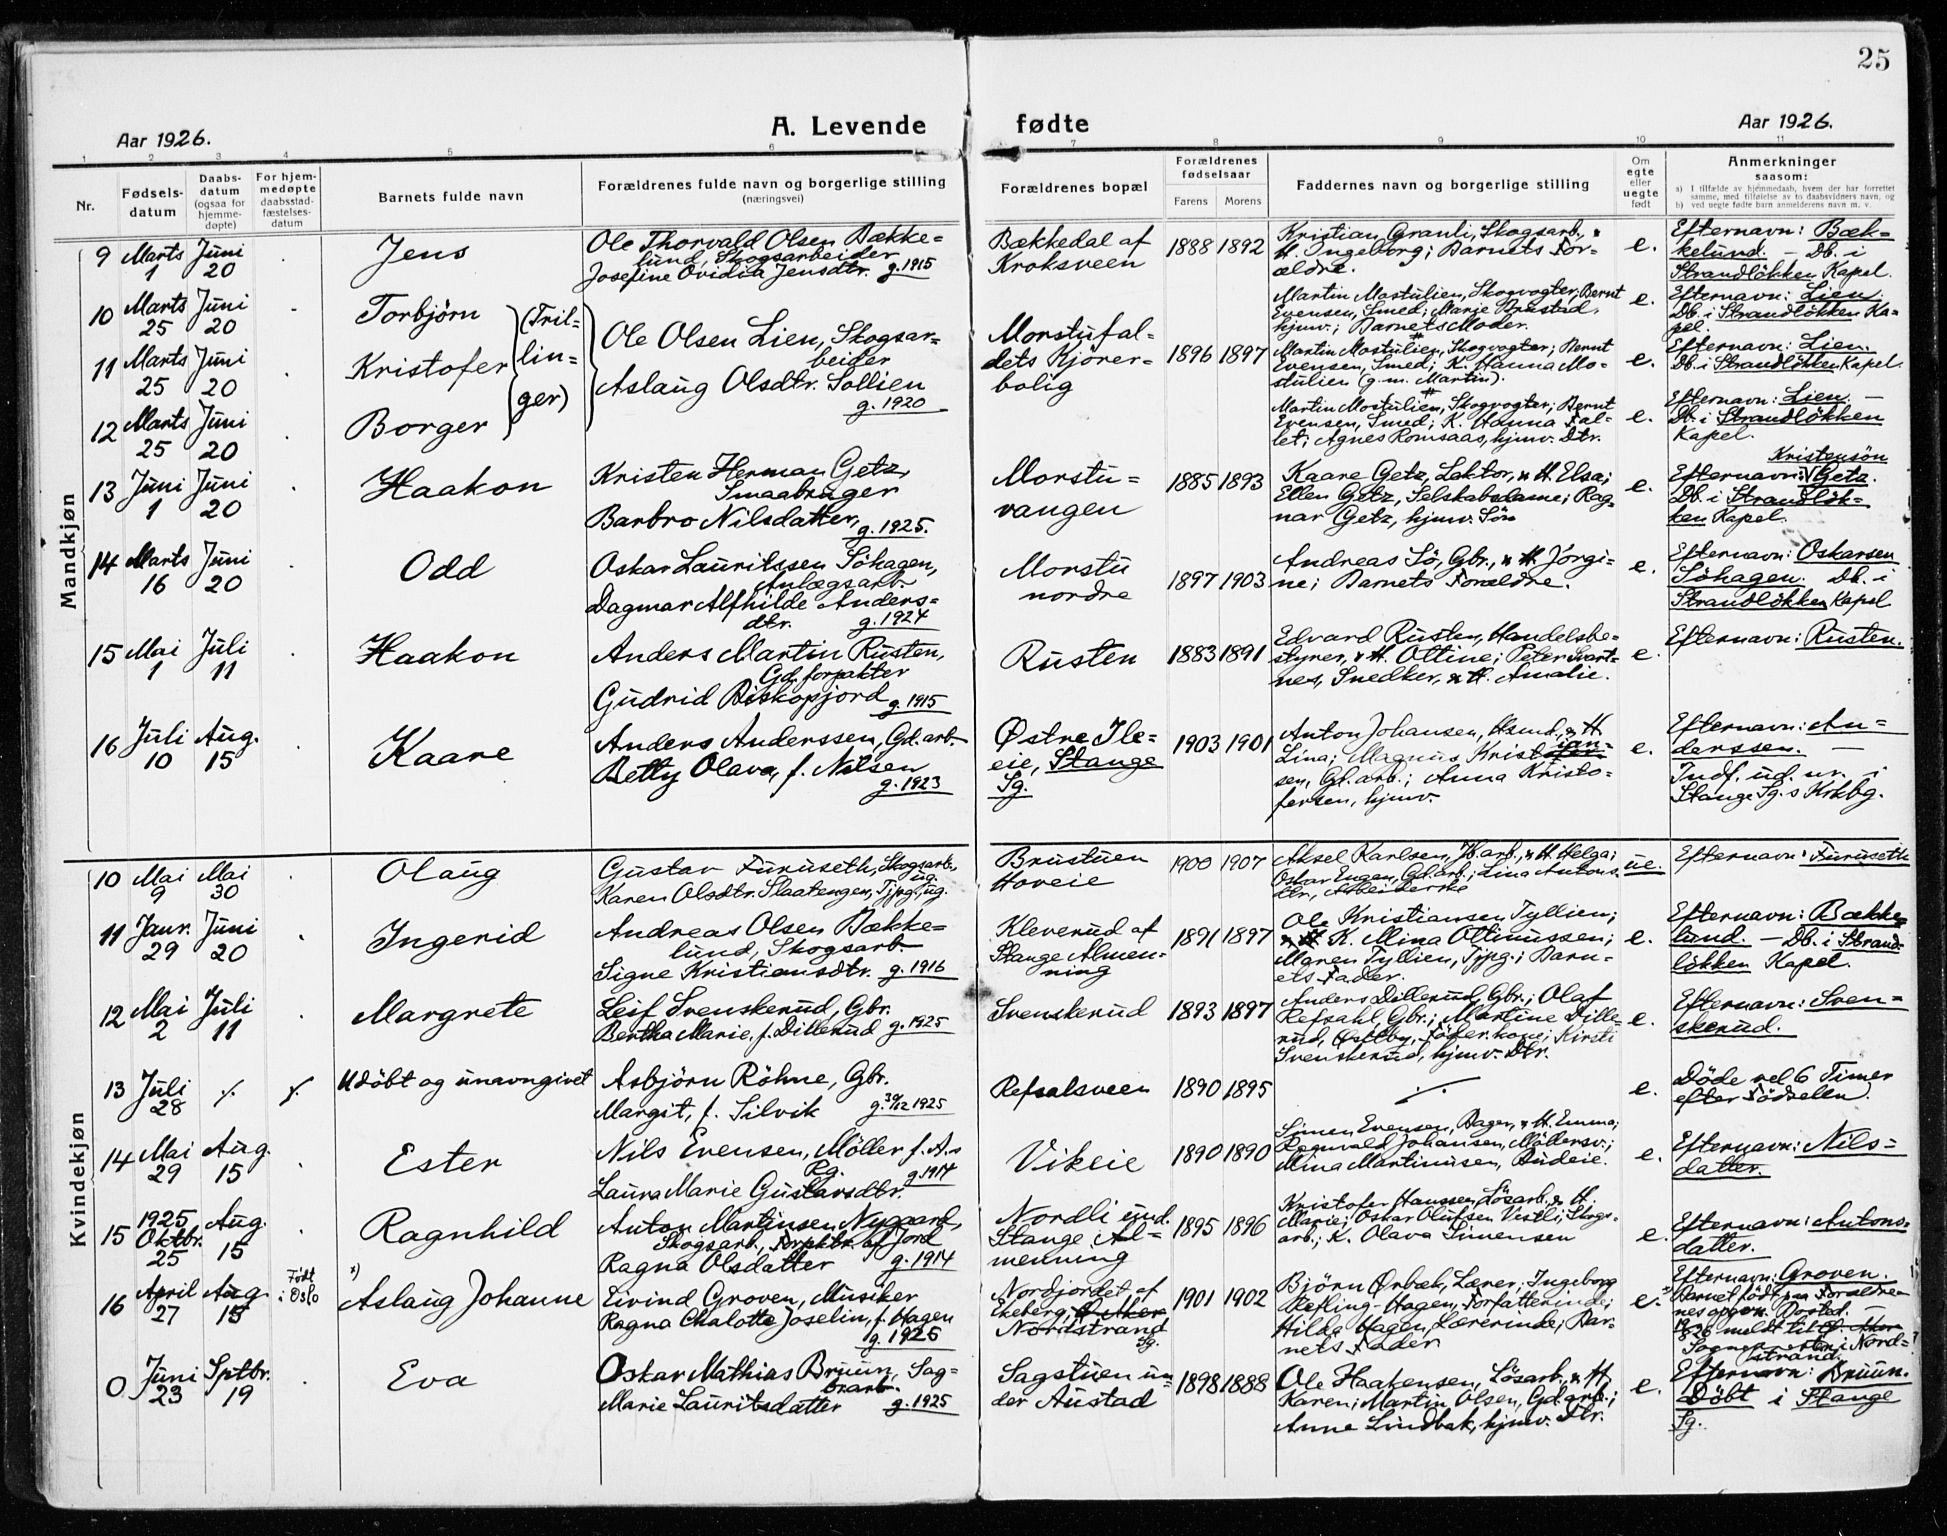 25
Aar 1926.
A. Levende fødte
Aar 1926.
1 2 3 4 5 6 7 8 9 10 11
Nr.
Fødsels-
datum
Daabs-
datum
(ogsaa for
hjemme-
døpte)
For hjem-
medøpte
daabsstad-
fæstelses-
datum
Barnets fulde navn
Forældrenes fulde navn og borgerlige stilling
(næringsvei)
Forældrenes bopæl
Forældrenes
fødselsaar
Farens Morens
Faddernes navn og borgerlige stilling
Om
egte
eller
uegte
født
Anmerkninger
saasom:
a) I tilfælde av hjemmedaab, hvem der har forrettet
samme, med tilføielse av to daabsvidners navn, og
b) ved uegte fødte barn anmelderens navn m. v.
Mandkjøn
9 Marts 1 Juni 20
Jens
Ole Thorvald Olsen Bække-
lund, Skogsarbeider
Josefine Ovidia Jensdtr. g. 1915
Bækkedal af
Kroksveen
1888 1892
Kristian Granli, Skogsarb., &
H. Ingeborg; Barnets For-
ældre.
e.
Efternavn: Bæk-
kelund. – Db. i
Strandlökken Kapel.
10 Marts 25 Juni 20
Torbjörn
(Tril-
lin-
ger)
Ole Olsen Lien, Skogsar-
beider
Aslaug Olsdtr. Sollien
g. 1920
Morstufal-
dets Kjörer-
bolig
1896 1897
Martin Mostulien, Skogvogter; Bernt
Evensen, Smed; Marie
hjmv.; Barnets Moder.
e.
Efternavn: Lien.
Db. i Strandlökken Ka-
pel.
11 Marts 25 Juni 20
Kristofer
Martin Mostulien, Skogvogter; Bernt
Evensen, Smed; K. Hanna Mo-
stulien (g. m. Martin).
e.
Efternavn: Lien.
Db. i Strandlökken Kapel.
12 Marts 25 Juni 20
Borger
Martin Mostulien, Skogvogter; Bernt
Evensen, Smed; K. Hanna Fal-
let; Agnes Romsaas, hjmv. Dtr.
e.
Efternavn: Lien. –
Db. i Strandlökken
Kapel.
13 Juni 1 Juni 20
Haakon
Kristen Herman Getz,
Smaabruger
Barbro Nilsdatter, g. 1925.
Morstu-
vangen
1885 1893
Kaare Getz, Lektor, & H. Elsa;
Ellen Getz, Selskabsdame; Rag-
nar Getz, hjmv. Sön
e.
Kristensön
Efternavn: Getz.
Db. i Strandlök-
ken Kapel.
14 Marts 16 Juni 20
Odd
Oskar Lauritssen Söhagen,
Anlægsarb.
Dagmar Alfhilde Anders-
dtr. g. 1924
Morstu
nordre
1897 1903
Andreas Sö, Gbr., & H. Jörgi-
ne; Barnets Forældre.
e.
Efternavn: Oskarsen
Söhagen. Db. i
Strandlökken Kapel
15 Mai 1 Juli 11
Haakon
Anders Martin Rusten,
Gd. forpakter
Gudrid Biskopjord g. 1915
Rusten
1883 1891
Edvard Rusten, Handelsbe-
styrer, & H. Ottine; Peter Svart-
nes, Snedker, & H. Amalie.
e.
Efternavn: Rusten.
16 Juli 10 Aug. 15
Kaare
Anders Anderssen, Gd. arb.
Betty Olava, f. Nilsen
g. 1923
Østre Ile-
eie, Stange
Sg.
1903 1901
Anton Johansen, Hsmd., & H.
Lina; Magnus Kristian-
sen, Gd. arb.; Anna Kristo-
fersen, hjmv.
e.
Efternavn: An-
derssen. –
Indf. ud. nr. i
Stange Sg.s Krkbg.
Kvindekjøn
10 Mai 9 Mai 30
Olaug
Gustav Furuseth, Skogsarb., ug.
Karen Olsdtr. Slaatengen, Tjpg., ug.
Brustuen
Hoveie
1900 1907
Aksel Karlsen, Jb. arb., & H. Helga;
Oskar Engen, Gd. arb.; Lina Antons-
dtr., Arbeiderske
ue.
Efternavn: Furuseth
11 Janr. 29 Juni 20
Ingerid
Andreas Olsen Bække-
lund, Skogsarb.
Signe Kristiansdtr. g. 1916
Kleverud af
Stange Almen-
ning
1891 1897
Ole Kristiansen Tyllien;
K. Mina Ottinussen;
Maren Tyllien, Tjpg.; Barn-
ets Fader.
e.
Efternavn: Bække-
lund. – Db. i Strand-
lökken Kapel.
12 Mai 2 Juli 11
Margrete
Leif Svenskerud, Gbr.
Bertha Marie, f. Dillerud g. 1925
Svenskerud
1893 1897
Anders Dillerud, Gbr.; Olaf
Refsahl, Gbr.; Martine Dille-
rud, Østby, Föder. kone; Kirsti
Svenskerud, hjmv. Dtr.
e.
Efternavn: Sven-
skerud.
13 Juli 28 ./. ./.
Udöbt og unavngivet
Asbjörn Röhne, Gbr.
Margit, f. Silvik g. 30/12 1925
Refsalsveen
1890 1895
./.
e.
Döde vel 6 Timer
efter Födselen.
14 Mai 29 Aug. 15
Ester
Nils Evensen, Möller f. A.s
Rg.
Laura Marie Gustavsdtr. g. 1914
Vikeie
1890 1890
Simen Evensen, Bager, & H. Emma;
Ragnvald Johansen, Möllersv.;
Mina Martinusen, Budeie.
e.
Efternavn: Nils-
datter.
15 1925 Oktbr. 25 Aug. 15
Ragnhild
Anton Martinsen Nygaard,
Skogsarb., Forpktr. af Jord
Ragna Olsdatter g. 1914
Nordli und.
Stange Al-
menning
1895 1896
Kristofer Hanssen, Lösarb. & H.
Marie; Oskar Olufsen Vestli, Skogs-
arb.; K. Olava Simensen
e.
Efternavn: Antons-
datter.
16 April 27 Aug. 15
Født
i Oslo
x) Aslaug Johanne
Eivind Groven, Musiker
Ragna Chalotte Joselin, f. Hagen
g. 1925
Nordjordet af
Ekeberg, Østker
Nordstrand
Sg.
1901 1902
Björn Ørbæk, Lærer; Ingeborg
Refling-Hagen, Forfatterinde;
Hilda Hagen, Lærerinde; Bar-
nets Fader
e.
Efternavn: Groven.
x) Barnet födt paa Forældre-
nes opgivne Bosted. –
meldt til
Sogneprest i Nord-
strand.
0 Juni 23 Sptbr. 19
Eva
Oskar Mathias Bruun, Sag-
brarb.
Marie Lauritsdatter g. 1925
Sagstuen un-
der Austad
1898 1888
Ole Haakensen, Lösarb., & H.
Karen; Martin Olsen, Gd. arb.;
Anne Lindbak, hjmv. Dtr.
e.
Efternavn: Bruun.
Döbt i Stange
Sg.